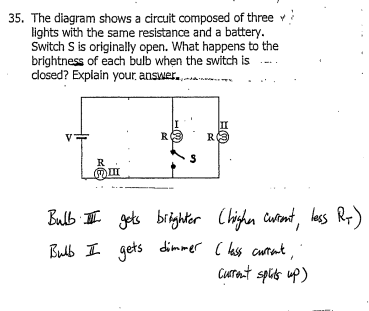 35. The diagram shows a circuit composed of three
lights with the same resistance and a battery.
Switch S is originally open. What happens to the
brightness of each bulb when the switch is
closed? Explain your answer.
I
II
V
R
R
S
R
III
Bulb III gets brighter (higher current, less RT)
Bulb II gets dimmer (less current,
current splits up)